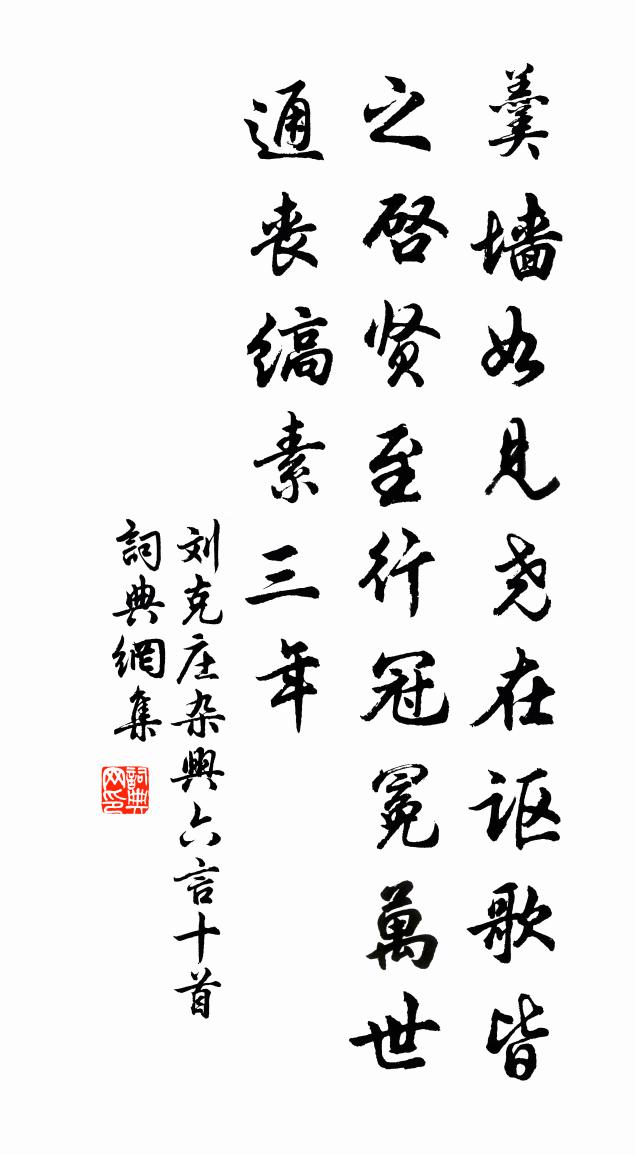 羹墙如见尧在讴歌皆
之启贤至行冠冕萬世
通丧缟素三年
刘克庄杂興六言十首
詞典網集
詞典网印